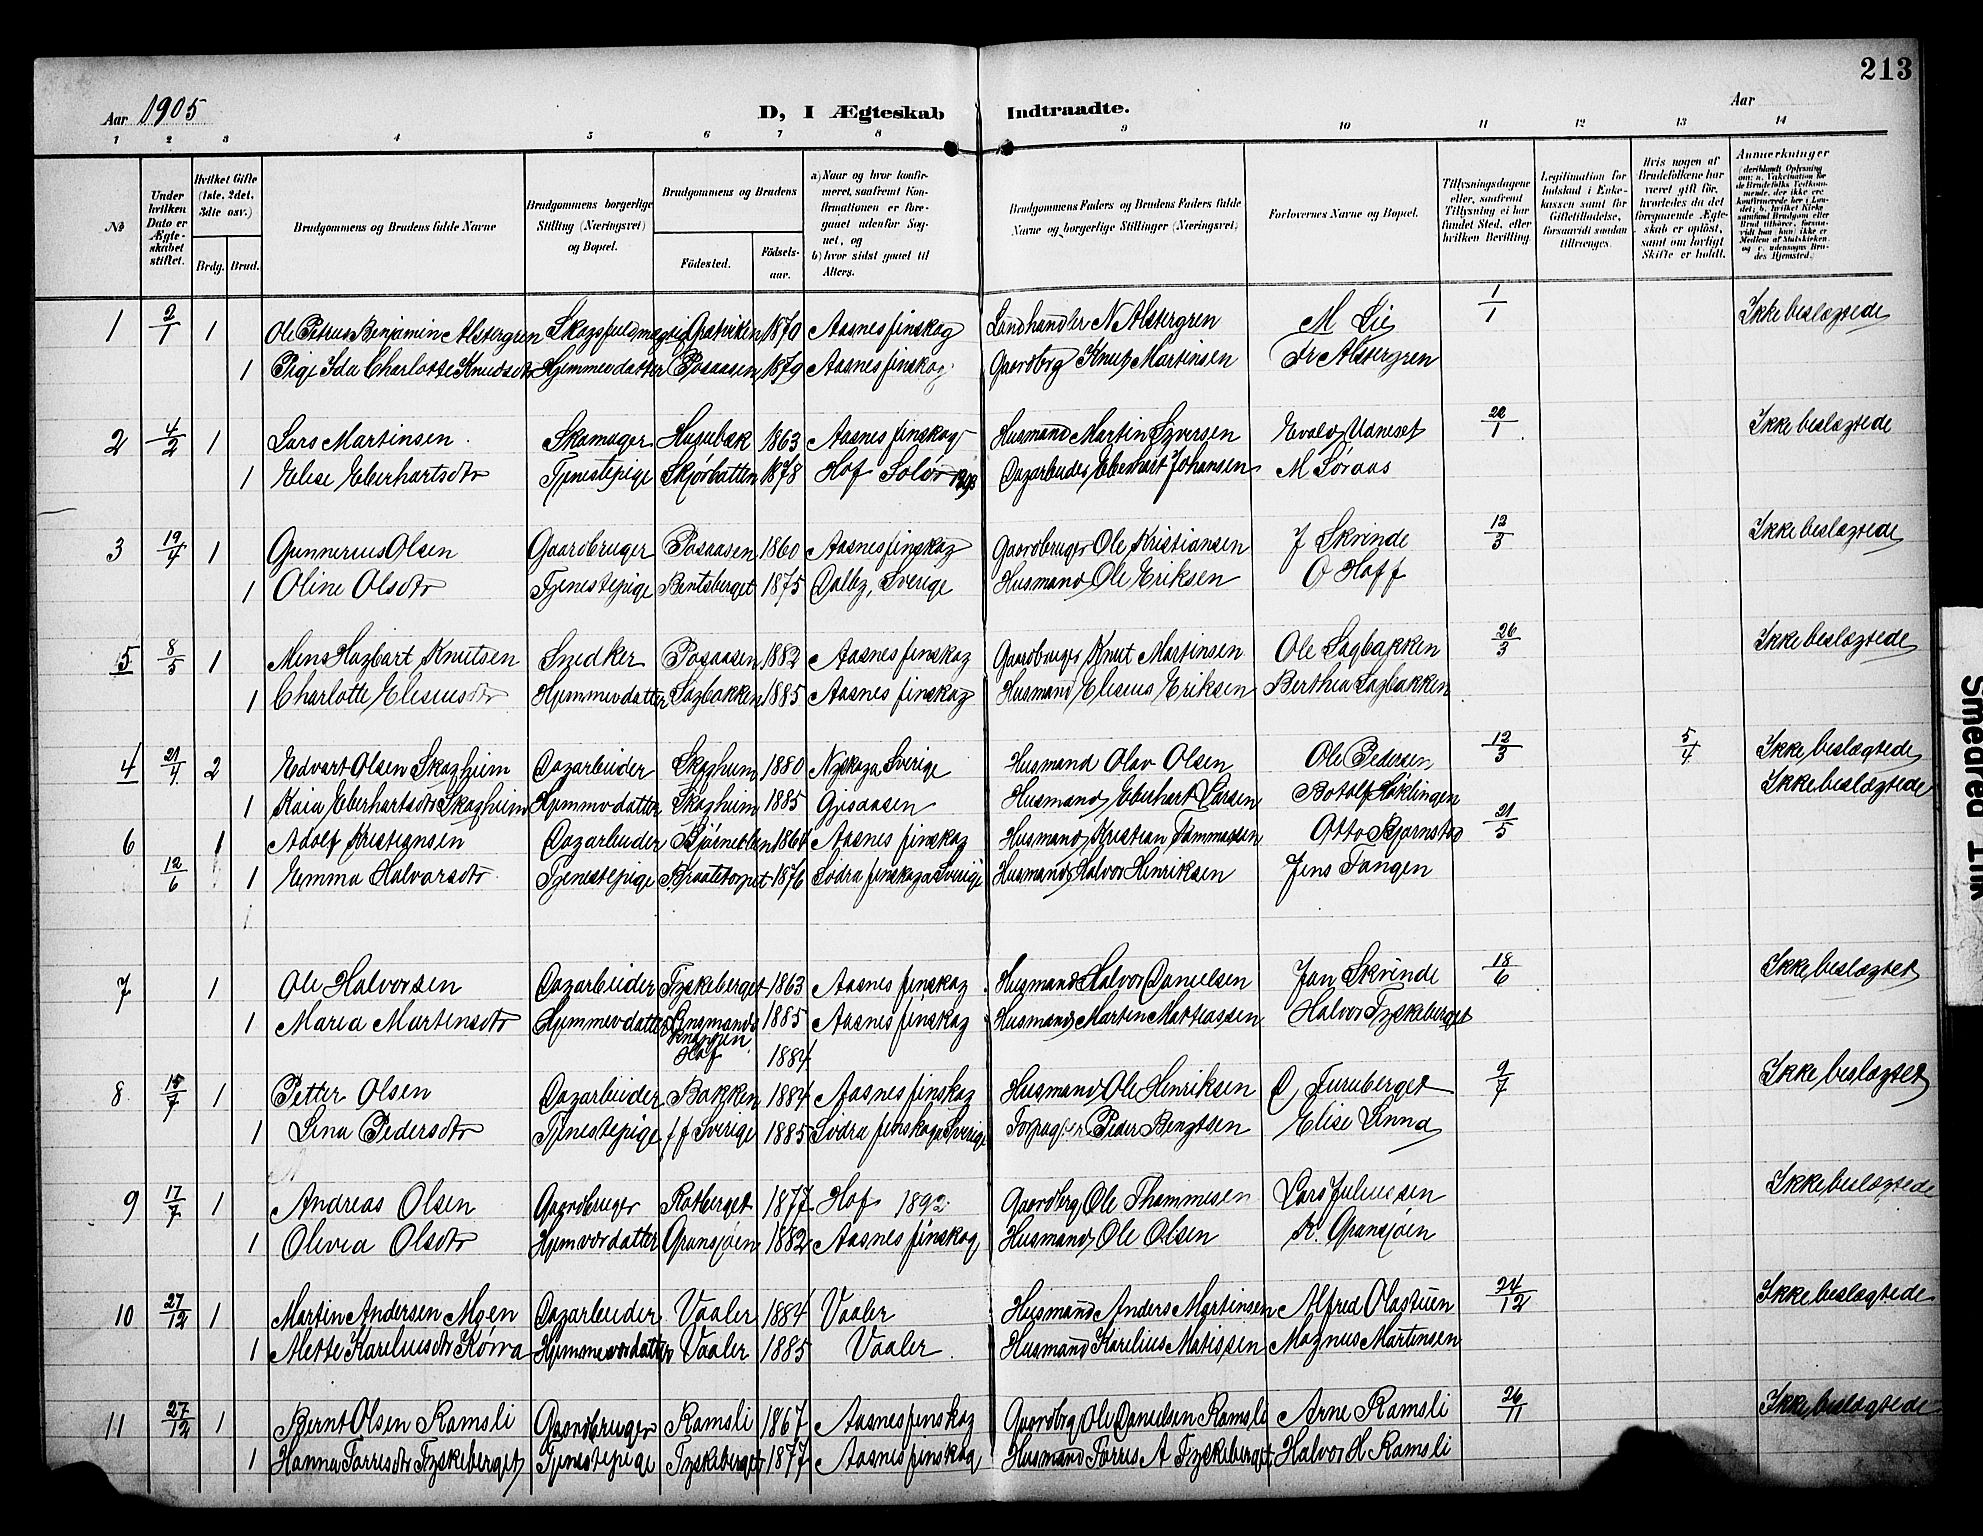 213
Aar 1905 D, I Ægteskab Indtraadte. Aar
1 2 3 4 5 6 7 8 9 10 11 12 13 14
№
Under hvilken Dato er Ægteskabet stiftet.
Hvilket Gifte (1ste, 2det, 3die osv.)
Brdg. Brud.
Brudgommens og Brudens fulde Navne
Brudgommens borgerlige Stilling (Næringsvei) og Bopæl.
Brudgommens og Brudens
Fødested. Fødselsaar.
a) Naar og hvor konfirmeret, saafremt Konfirmationen er foregaaet udenfor Sognet, og
b) hvor sidst gaaet til Alters.
Brudgommens Faders og Brudens Faders fulde Navne og borgerlige Stillinger (Næringsvei)
Forlovernes Navne og Bopæl.
Tillysningsdagene eller, saafremt Tillysning ei har fundet Sted, efter hvilken Bevilling.
Legitimation for Indskud i Enkekassen samt for Giftetilladelse, forsaavidt saadan tiltrænges.
Hvis nogen af Brudefolkene har været gift før, hvorledes da det foregaaende Ægteskab er opløst, samt om lovligt Skifte er holdt.
Anmærkninger (deriblandt Oplysning om: a. Vaksination for de Brudefolks Vedkommende, der ikke ere konfirmerede her i Landet; b. hvilket Kirkesamfund Brudgom eller Brud tilhører, forsaavidt han (hun) ikke er Medlem af Statskirken og c. udensogns Brudes Hjemsted.)
1 2/1 1 Ole Petrus Benjamin Alstergren Skogsfuldmægtig Gratviken 1870 Aasnes finskog Landhandler N Alstergren M Lie 1/1 Ikke beslægtede
1 Pige Ida Charlotte Knudsdtr Hjemmevdatter Posaasen 1879 Aasnes finskog Gaardbrg Knut Martinsen Fr Alstergren
2 4/2 1 Lars Martinsen Skomager 1863 Aasnes finskog Husmand Martin Syversen Evald 22/1 Ikke beslægtede
1 Elise Eberhartsdtr Tjenestepige Skjørbatten 1878 Hof Solør Dagarbeider Eberhart Johansen M Søraas
3 19/4 1 Gunnerius Olsen Gaardbruger Posaasen 1860 Aasnes finskog Gaardbruger Ole Kristiansen J Skrinde 12/3 Ikke beslægtede
1 Oline Olsdtr Tjenestepige Bentsberget 1875 Dalby, Sverige Husmand Ole Eriksen O Hoff
5 8/5 1 Mens Hagbart Knutsen Snedker Posaasen 1882 Aasnes finskog Gaardbruger Knut Martinsen Ole Sagbakken 26/3 Ikke beslægtede
1 Charlotte Eliseusdtr Hjemmevdatter Sagbakken 1885 Aasnes finskog Husmand Eliseus Eriksen Berthea Sagbakken
4 21/4 2 Edvart Olsen Skogheim Dagarbeider Skogheim 1880 Nyskoga Sverige Husmand Olav Olsen Ole Pedersen 12/3 5/4 Ikke beslægtede
1 Kaia Eberhartsdtr Skogheim Hjemmevdatter Skogheim 1885 Gjesaasen Husmand Eberhart Larsen Botolf Løklingen Ikke beslægtede
6 1 Adolf Kristiansen Dagarbeider Aasnes finskog Husmand Kristian Tommassen Otto Bjørnstad 21/5
12/6 1 Emma Halvorsdtr Tjenestepige Braatetorpet 1876 Södra finskoga Sverige Husmand Halvor Henriksen Jens Tangen
7 1 Ole Halvorsen Dagarbeider Tyskeberget 1863 Aasnes finskog Husmand Halvor Danielsen Jan Skrinde 18/6 Ikke beslægtet
1 Marea Martensdtr Hjemmevdatter 1885 Aasnes finskog Husmand Marten Mattiassen Halvor Tyskeberget
Hof 1884
8 15/7 1 Petter Olsen Dagarbeider Bakken 1884 Aasnes finskog Husmand Ole Henriksen O Furuberget 9/7 Ikke beslægtet
1 Lina Pedersdtr Tjenestepige ff Sverige 1885 Södra finskoga Sverige Peder Bengtsen Elise Linna
9 17/7 1 Andreas Olsen Gaardbruger Rotberget 1877 Hof 1892 Gaardbrg Ole Thommesen Lars Juliussen Ikke beslægtede
1 Olivea Olsdtr Hjemvdatter Gransjøen 1882 Aasnes finskog Husmand Ole Olsen K. Gransjøen
10 27/12 1 Martin Andersen Moen Dagarbeider Vaaler 1884 Vaaler Husmand Anders Martinsen Alfred Olastuen 24/12 Ikke beslægtede
1 Mette Kareliusdtr Korva Hjemmevdatter Vaaler 1885 Vaaler Husmand Karelius Matissen Magnus Martensen
11 27/12 1 Bernt Olsen Ramsli Gaardbruger Ramsli 1867 Aasnes finskog Gaardbrg Ole Danielsen Ramsli Arne Ramsli 26/11 Ikke beslægtede
1 Hanna Torresdtr Tyskeberget Tjenestepige Tyskeberget 1877 Aasnes finskog Husmand Torres A Tyskeberget Halvor H Ramsli
Smedrød Trk